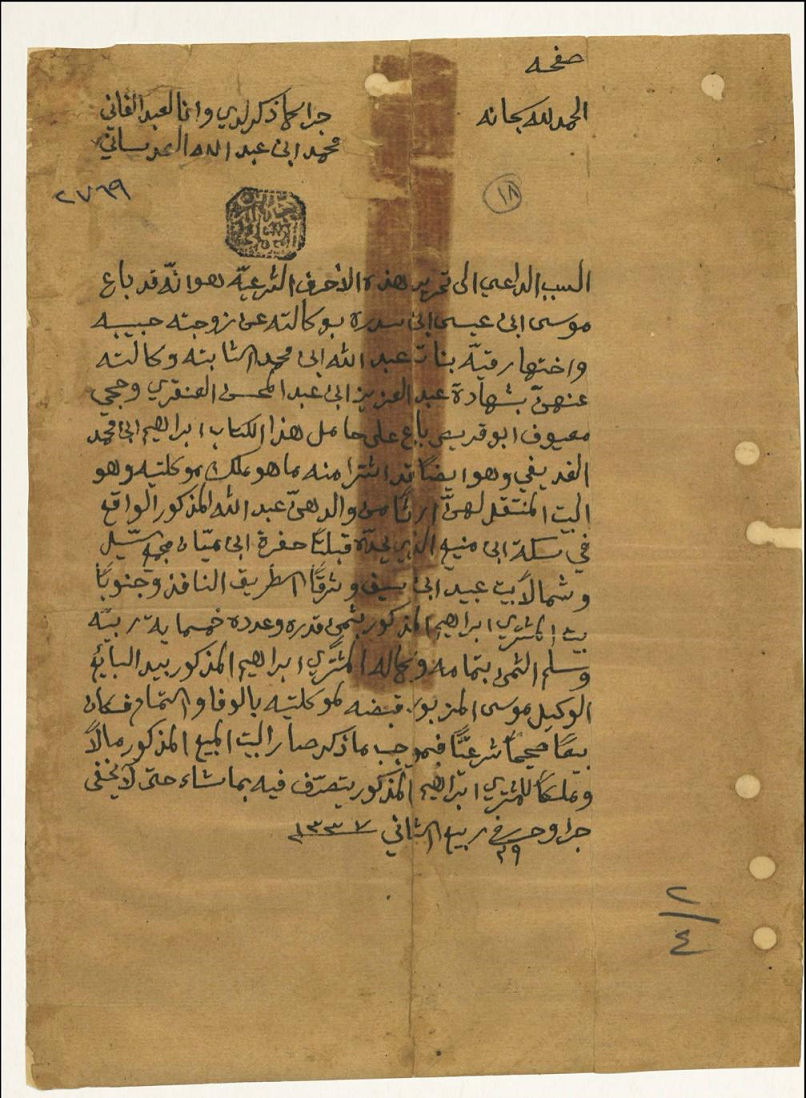 صفحه
الحمد لله سبحانه
جرا كما ذكر لدي وانا العبد الفاني
محمد ابن عبد الله العدساني
٢٧٦٩
١٨
السبب الداعي الى تحرير هذه الاحرف الشرعيّه هو انّه قد باع
موسى ابن عيسى ابن سدره بوكالته عن زوجته حبيبه
واختها رقيّه بنات عبد الله ابن محمد الثابته وكالته
عنهنّ بشهادة عبد العزيز ابن عبد المحسن العنقري وحجي
معيوف ابو قريص باع على حامل هذا الكتاب ابراهيم ابن محمد
الفديفي وهو ايضًا قد اشترا منه ما هو ملك موكلتيه وهو
البيت المنتقل لهنّ ارثًا من والدهنّ عبد الله المذكور الواقع
في سكة ابن منيس الذي يحدّه قبلتًا حفرة ابن مجرى سيل
وشمالاً بيت عبيد ابن سيف وشرقًا الطريق النافذ وجنوبًا
بيت المشتري ابراهيم المذكور بثمن قدره وعدده خمسمايه ربيّه
وسلم الثمن بتمامه وكماله المشتري ابراهيم المذكور بيد البايع
الوكيل موسى المزبور قبضه لموكلتيه بالوفا والتمام فكان
بيعًا صحيحاً شرعيًّا فبموجب ما ذكر صار البيت المبيع المذكور مالاً
وملكًا للمشتري ابراهيم المذكور يتصرّف فيه بما شاء حتى لا يخفى
جرا وحرر في ٢٩ ربيع الثاني ١٣٣٧
٢/٤